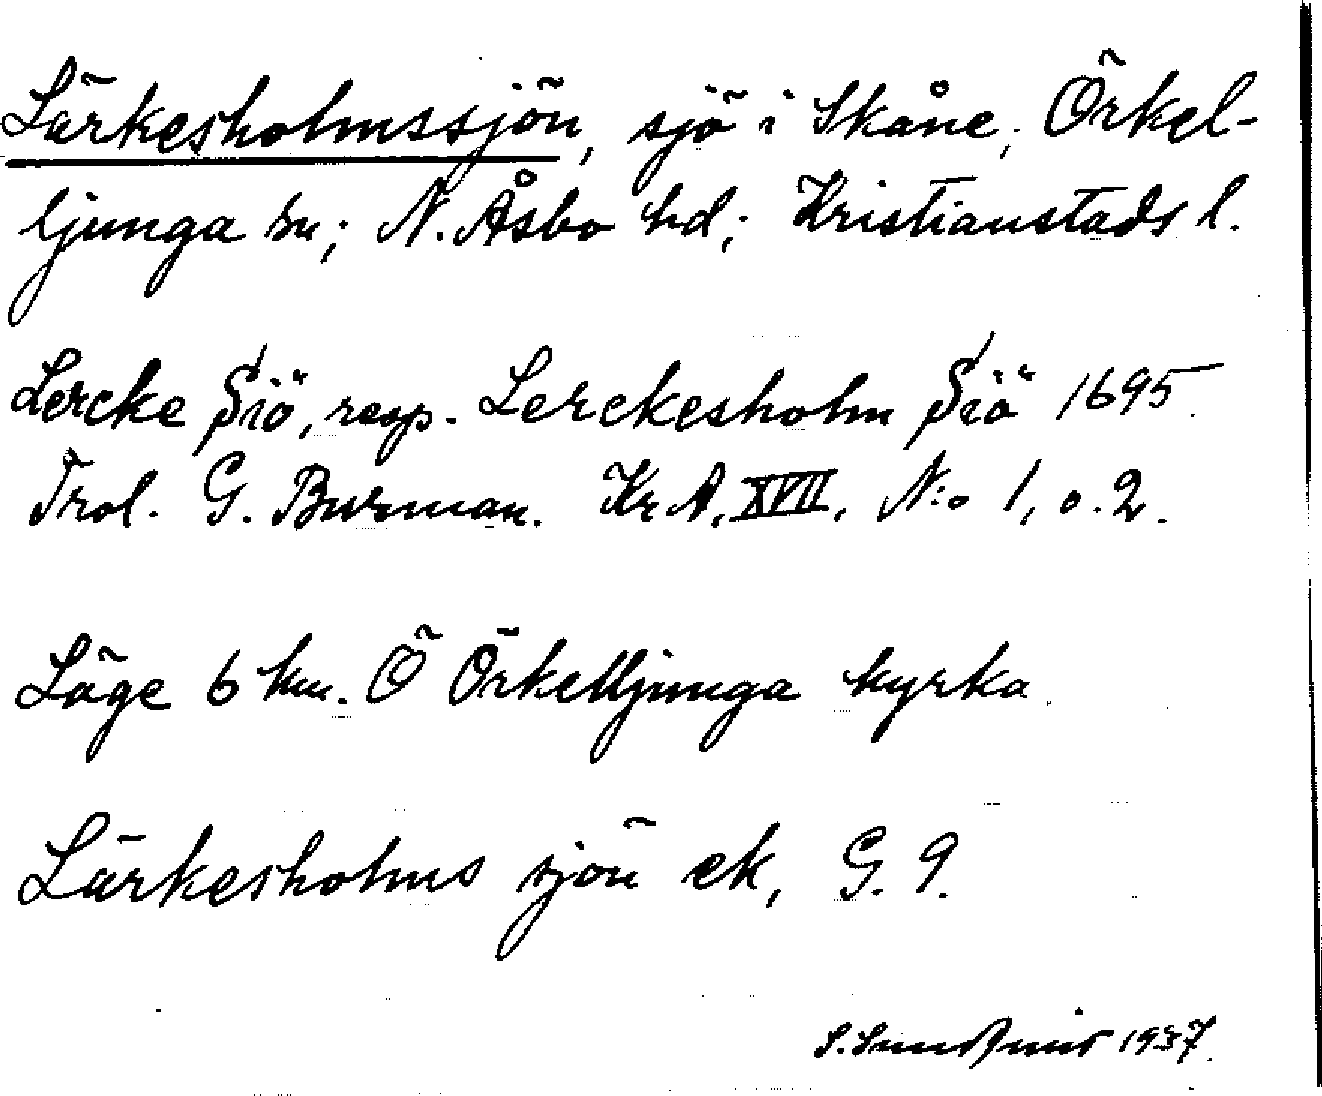 Lärkesholmssjön, sjö i Skåne; Örkel-
ljunga sn; N. Åsbo hd; Kristianstads l.
Lercke Siö, resp. Lerckesholm Siö 1695.
G. Burman. KrA, XVII, N:o 1, o. 2.
Läge 6 km. Ö Örkelljunga kyrka
Lärkesholms sjön ek, G. 9.
S. 1937.